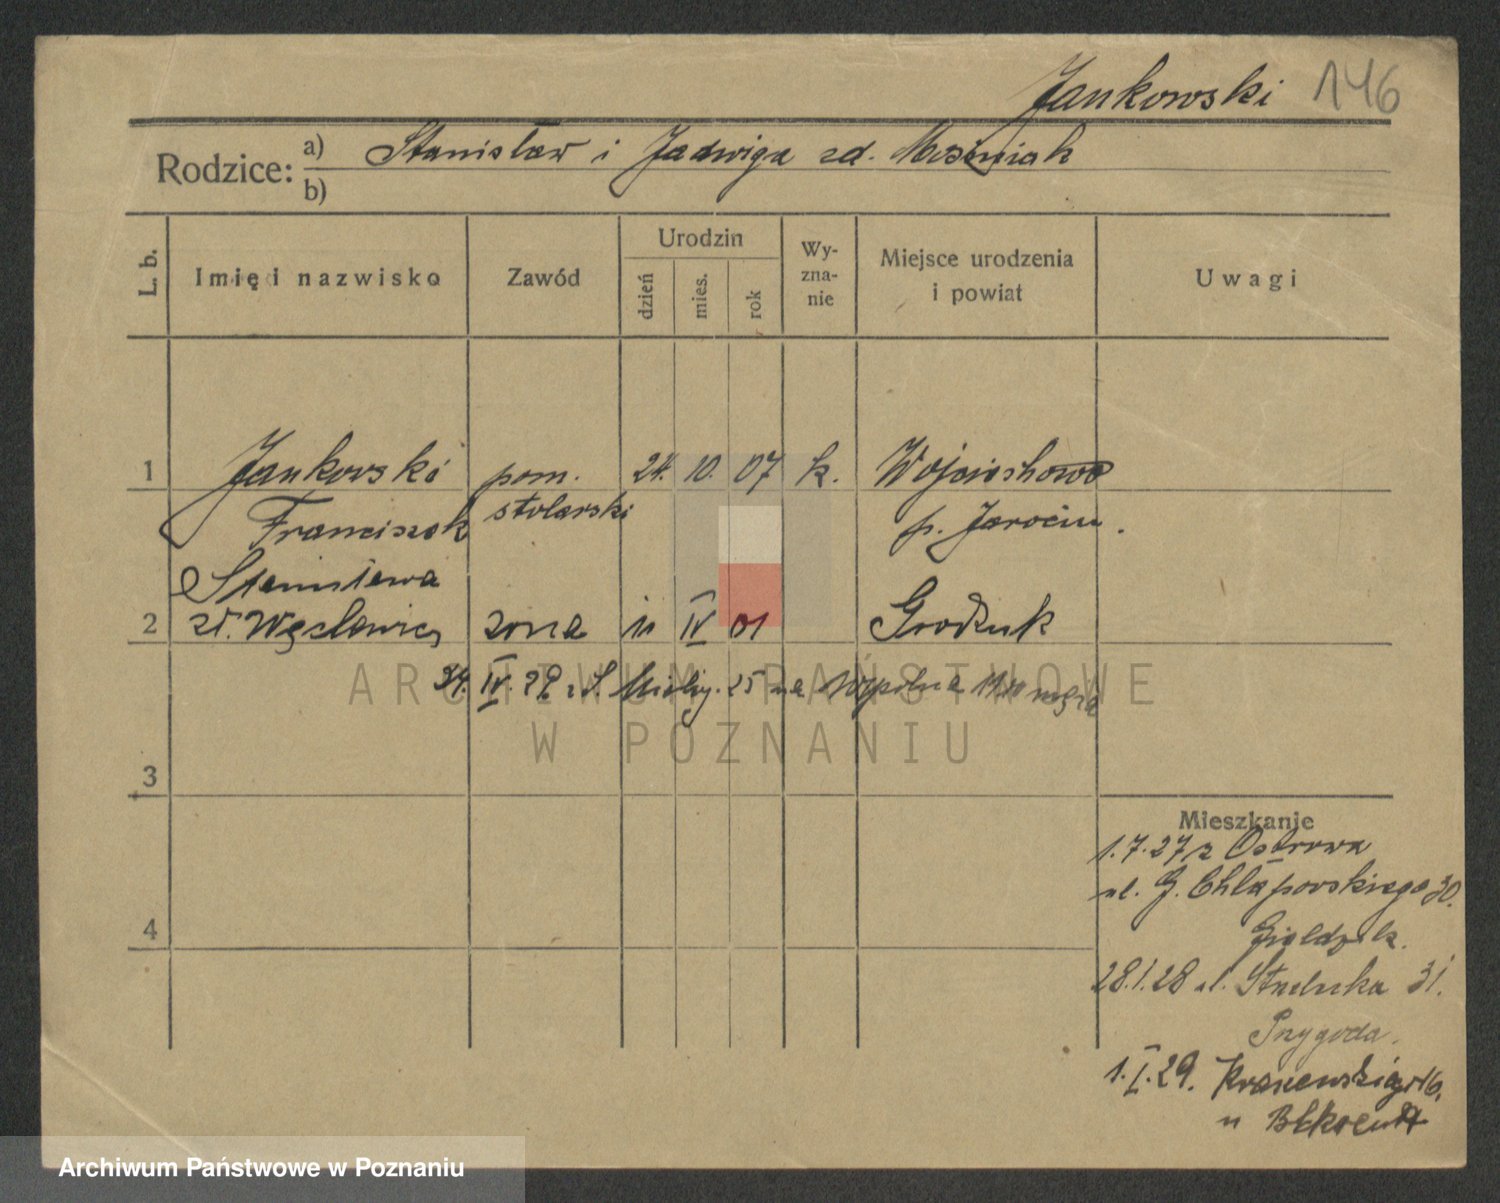 Jankowski 146
Rodzice: a) Stanisław i Jadwiga zd.
b)
L. b.
Imię i nazwisko
Zawód
Urodzin
dzień
mies.
rok
Wy-
zna-
nie
Miejsce urodzenia
i powiat
Uwagi
1 Jankowski pom. 24. 10. 07 k. Wojciechowo
Franciszek stolarski p. Jarocin.
Stanisława
2 zd. Węcławicz żona 11 IV 01
24. IV. 29 na Wspólna
ARCHIWUM PAŃSTWOWE
W POZNANIU
3
Mieszkanie
1.7.27 z Ostrowa
ul. G. Chłapowskiego 30.
4
28.1.28 ul. Strzelecka 31.
Przygoda.
1. I. 29. 16.
u
Archiwum Państwowe w Poznaniu